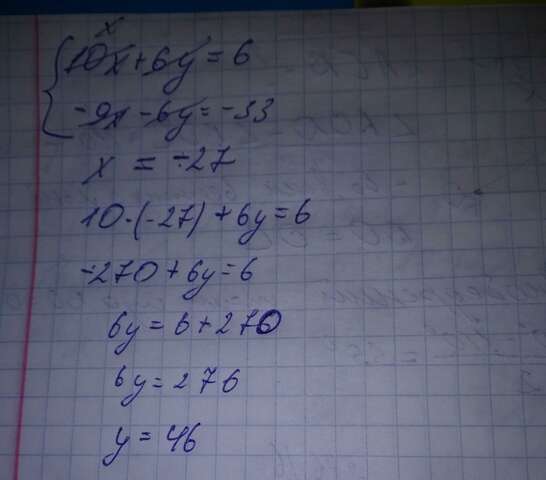 x
10x+6y=6
-9x-6y=-33
x = -27
10·(-27)+6y=6
-270+6y=6
6y=6+270
6y=276
y=46